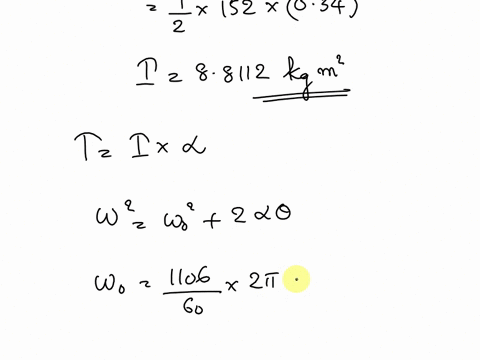 = 1/2 × 152 × (0.34)
I = 8.8112 kg m²
T = I × α
ω² = ω₀² + 2αθ
ω₀ = 1106/60 × 2π